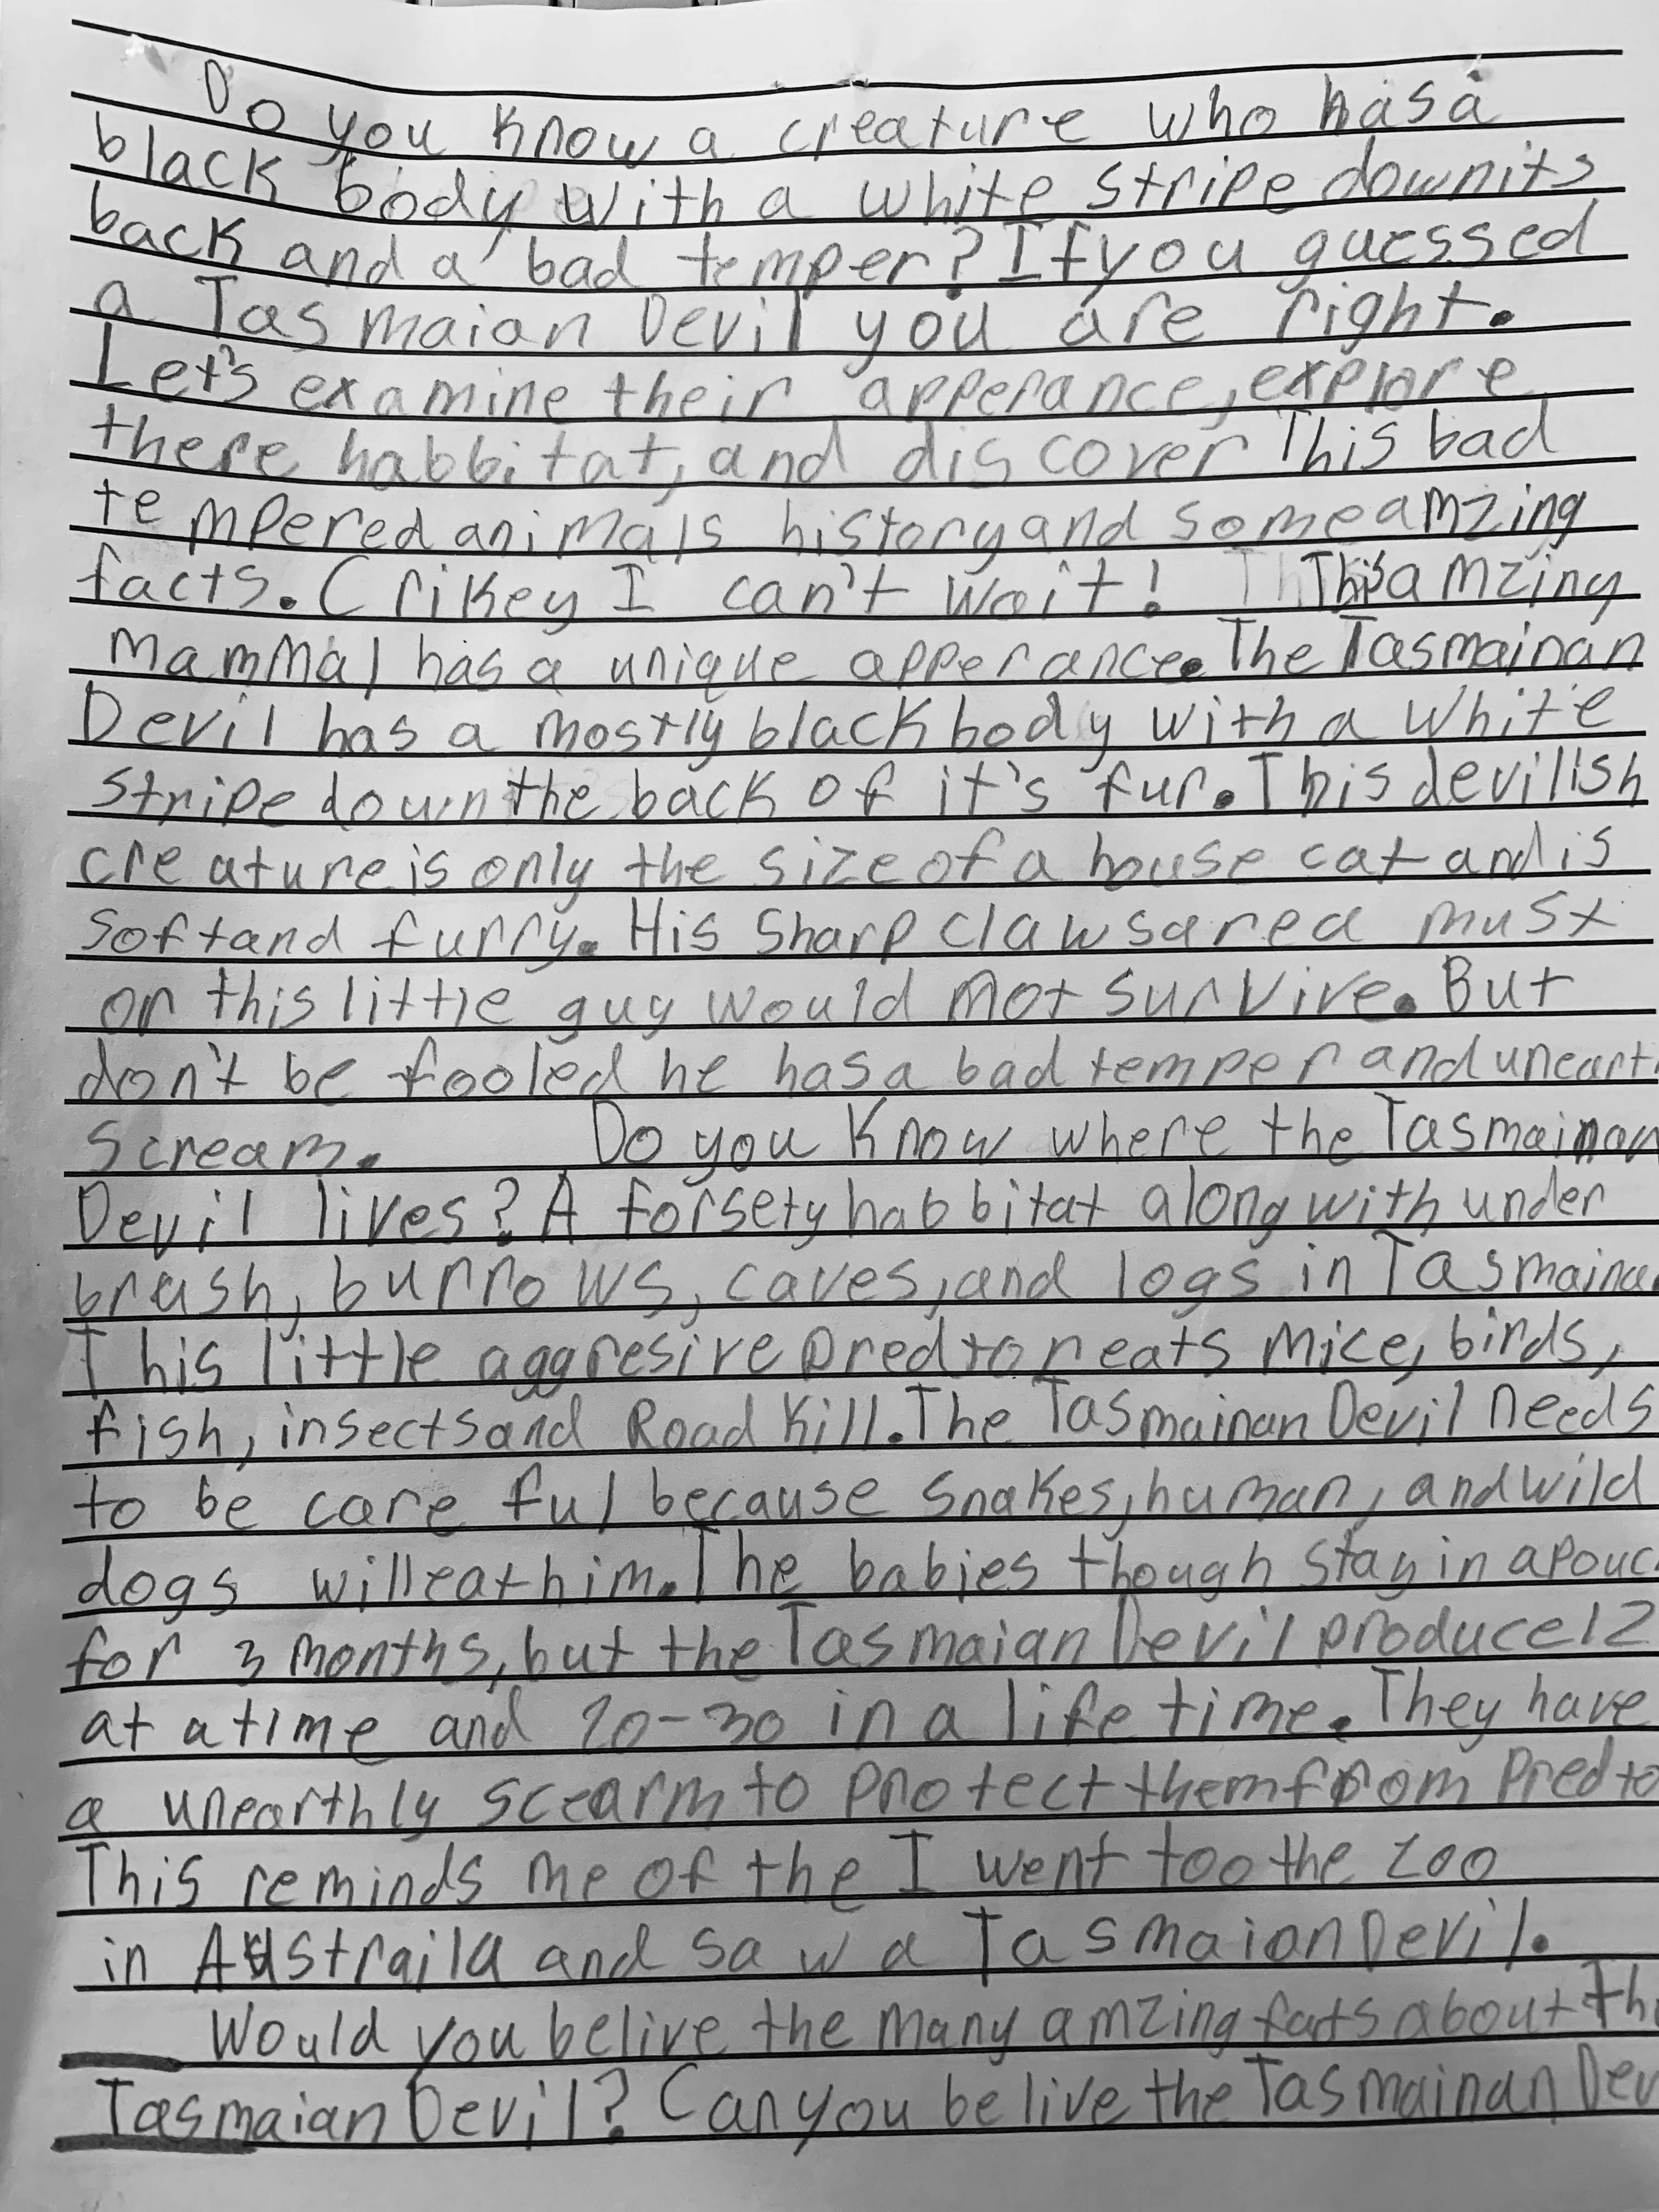 Do you know a creature who has a
black body with a white stripe down its
back and a bad temper? If you guessed
a Tasmaian Devil you are right.
Let's examine their apperance, explore
there habbitat, and discover This bad
tempered animals history and some amzing
facts. Crikey I can't wait! This amzing
mammal has a unique apperance. The Tasmainan
Devil has a mostly black body with a white
stripe down the back of it's fur. This devilish
creature is only the size of a house cat and is
soft and furry. His sharp claws are a must
or this little guy would not survive. But
don't be fooled he has a bad temper and uneart
scream. Do you know where the Tasmainan
Devil lives? A forsety habbitat along with under
brush, burrows, caves, and logs in Tasmaina
This little aggresive predtor eats mice, birds,
fish, insects and Road Kill. The Tasmainan Devil needs
to be care ful because snakes, human, and wild
dogs will eat him. The babies though stay in a pouc
for 3 months, but the Tasmaian Devil produce 12
at a time and 20-30 in a life time. They have
a unearthly scearm to protect them from Predto
This reminds me of the I went too the zoo
in Austraila and saw a Tasmaian Devil.
Would you belive the many amzing fats about Th
Tasmaian Devil? Can you belive the Tasmainan Dev